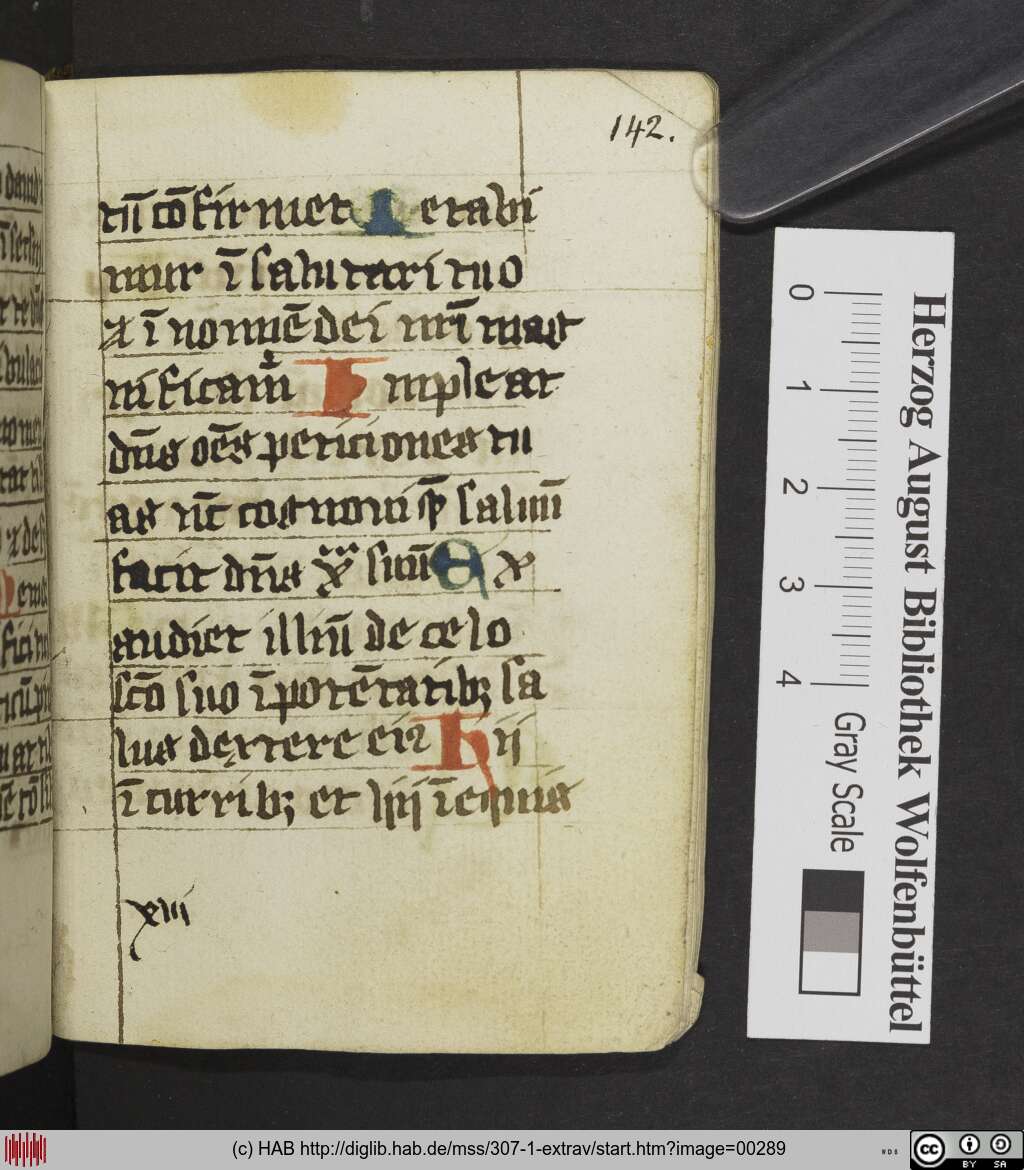 142.
tuū cōfirmet Letabi
mur ī salutari tuo
⁊ ī nomīe dei nr̄i mag
nificam̄ Impleat
dn̄s oēs peticiones tu
as nūc cognoui qm̄ saluū
facit dn̄s xp̄m suū Ex
audiet illū de celo
sc̄o suo ī potētatibꝫ sa
lus dextere eiꝰ Hii
ī curribꝫ et hij ī equis
xiii
Herzog August Bibliothek Wolfenbüttel
0 1 2 3 4
Gray Scale
(c) HAB http://diglib.hab.de/mss/307-1-extrav/start.htm?image=00289
cc BY SA